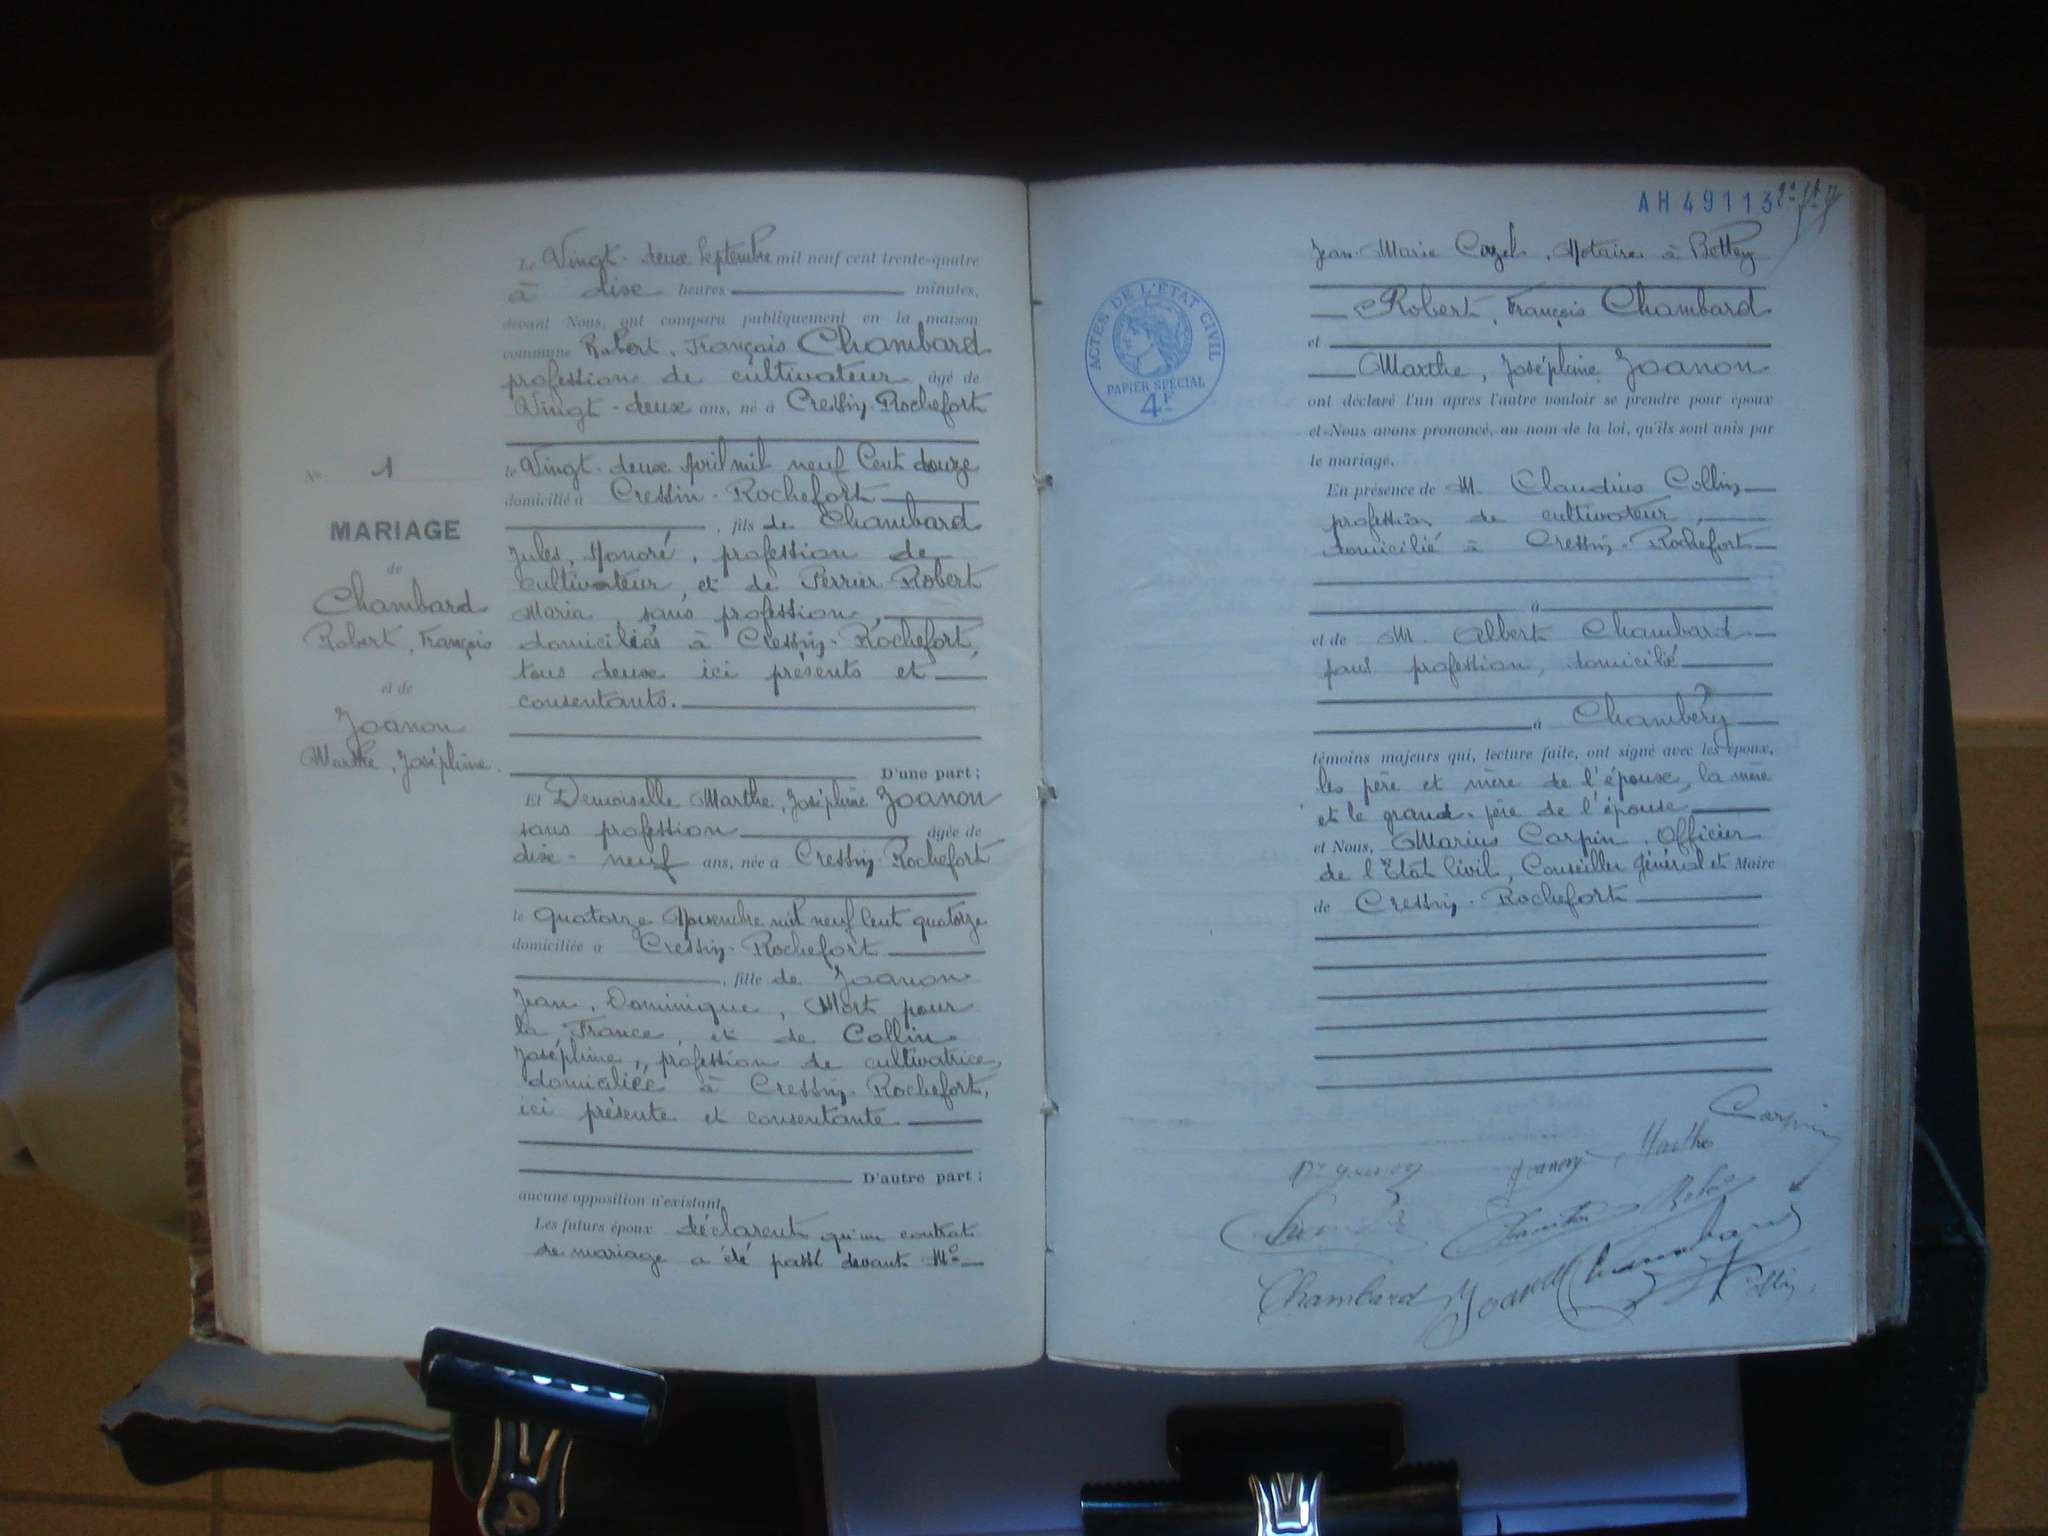 Le Vingt-deux Septembre mil neuf cent trente-quatre
à dix heures minutes,
devant Nous, ont comparu publiquement en la maison
commune Robert, François Chambard
profession de cultivateur âgé de
Vingt-deux ans, né à Cressin-Rochefort
le Vingt-deux Avril mil neuf Cent douze
domicilié à Cressin-Rochefort
, fils de Chambard
Jules, Honoré, profession de
cultivateur, et de Perrier Robert
Maria, sans profession,
domiciliés à Cressin-Rochefort,
tous deux ici présents et
consentants.
D'une part ;
No 1
MARIAGE
de
Chambard
Robert, François
et de
Joanon
Marthe, Joséphine.
Et Demoiselle Marthe, Joséphine Joanon
sans profession âgée de
dix-neuf ans, née à Cressin-Rochefort
le quatorze Novembre mil neuf Cent quatorze
domiciliée à Cressin-Rochefort
, fille de Joanon
Jean, Dominique, Mort pour
la France, et de Collin
Joséphine, profession de cultivatrice,
domiciliée à Cressin-Rochefort,
ici présente et consentante
D'autre part ;
aucune opposition n'existant,
Les futurs époux déclarent qu'un contrat
de mariage a été passé devant Me
AH 49113
Jean-Marie Notaire à
ACTES DE L'ÉTAT CIVIL
PAPIER SPÉCIAL
4F
Robert, François Chambard
et
Marthe, Joséphine Joanon
ont déclaré l'un après l'autre vouloir se prendre pour époux
et Nous avons prononcé, au nom de la loi, qu'ils sont unis par
le mariage.
En présence de M. Claudius Collin
profession de cultivateur,
domicilié à Cressin-Rochefort
à
et de M. Albert Chambard
sans profession, domicilié
à Chambéry
témoins majeurs qui, lecture faite, ont signé avec les époux,
les père et mère de l'épouse, la mère
et le grand-père de l'épouse
et Nous, Marius Carpin, Officier
de l'État Civil, Conseiller Général et Maire
de Cressin-Rochefort
Carpin
Joanon Marthe
Chambard Robert
Chambard
Chambard Joanon Collin